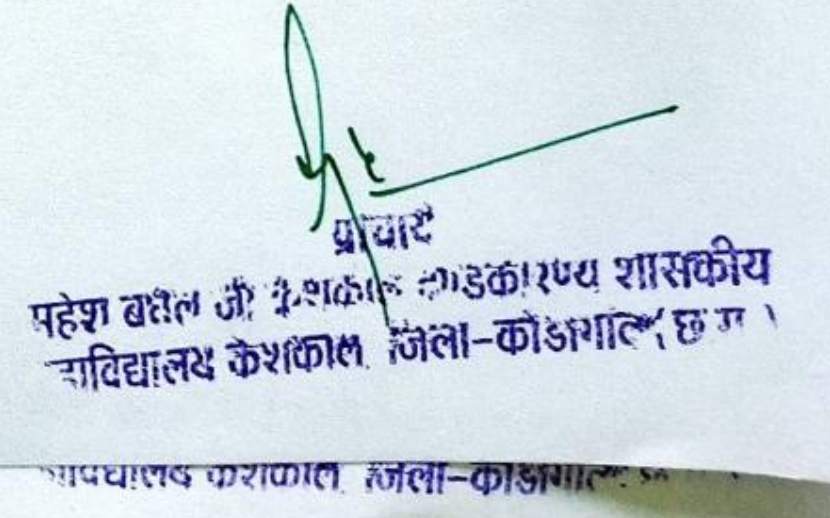 प्राचार्य
महेश बघेल जी केशकाल दण्डकारण्य शासकीय
महाविद्यालय केशकाल, जिला-कोंडागांव (छ.ग.)
केशकाल, जिला-कोंडागांव